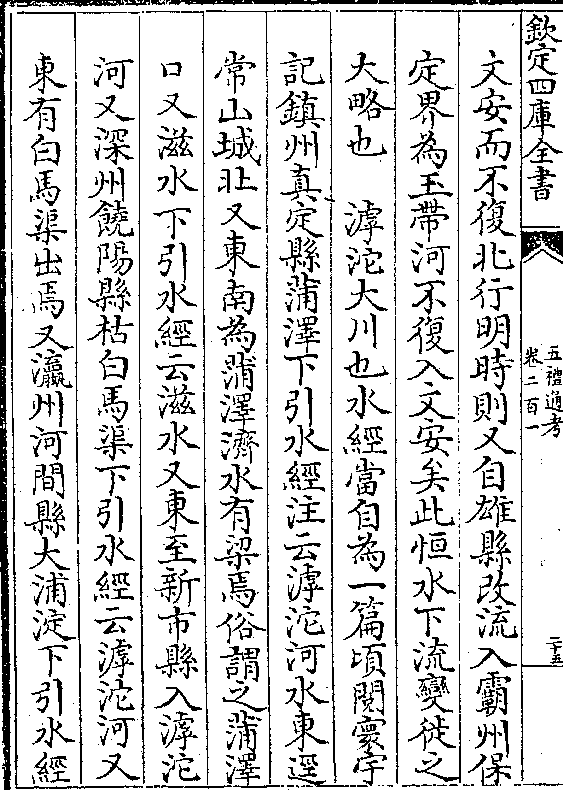 欽定四庫全書
五禮通考
卷二百一
二十五
文安而不復北行明時則又自雄縣改流入霸州保
定界為玉帶河不復入文安矣此恒水下流變徙之
大略也　滹沱大川也水經當自為一篇頃閱寰宇
記鎮州真定縣蒲澤下引水經注云滹沱河水東逕
常山城北又東南為蒲澤濟水有梁焉俗謂之蒲澤
口又滋水下引水經云滋水又東至新市縣入滹沱
河又深州饒陽縣枯白馬渠下引水經云滹沱河又
東有白馬渠出焉又瀛州河間縣大浦淀下引水經